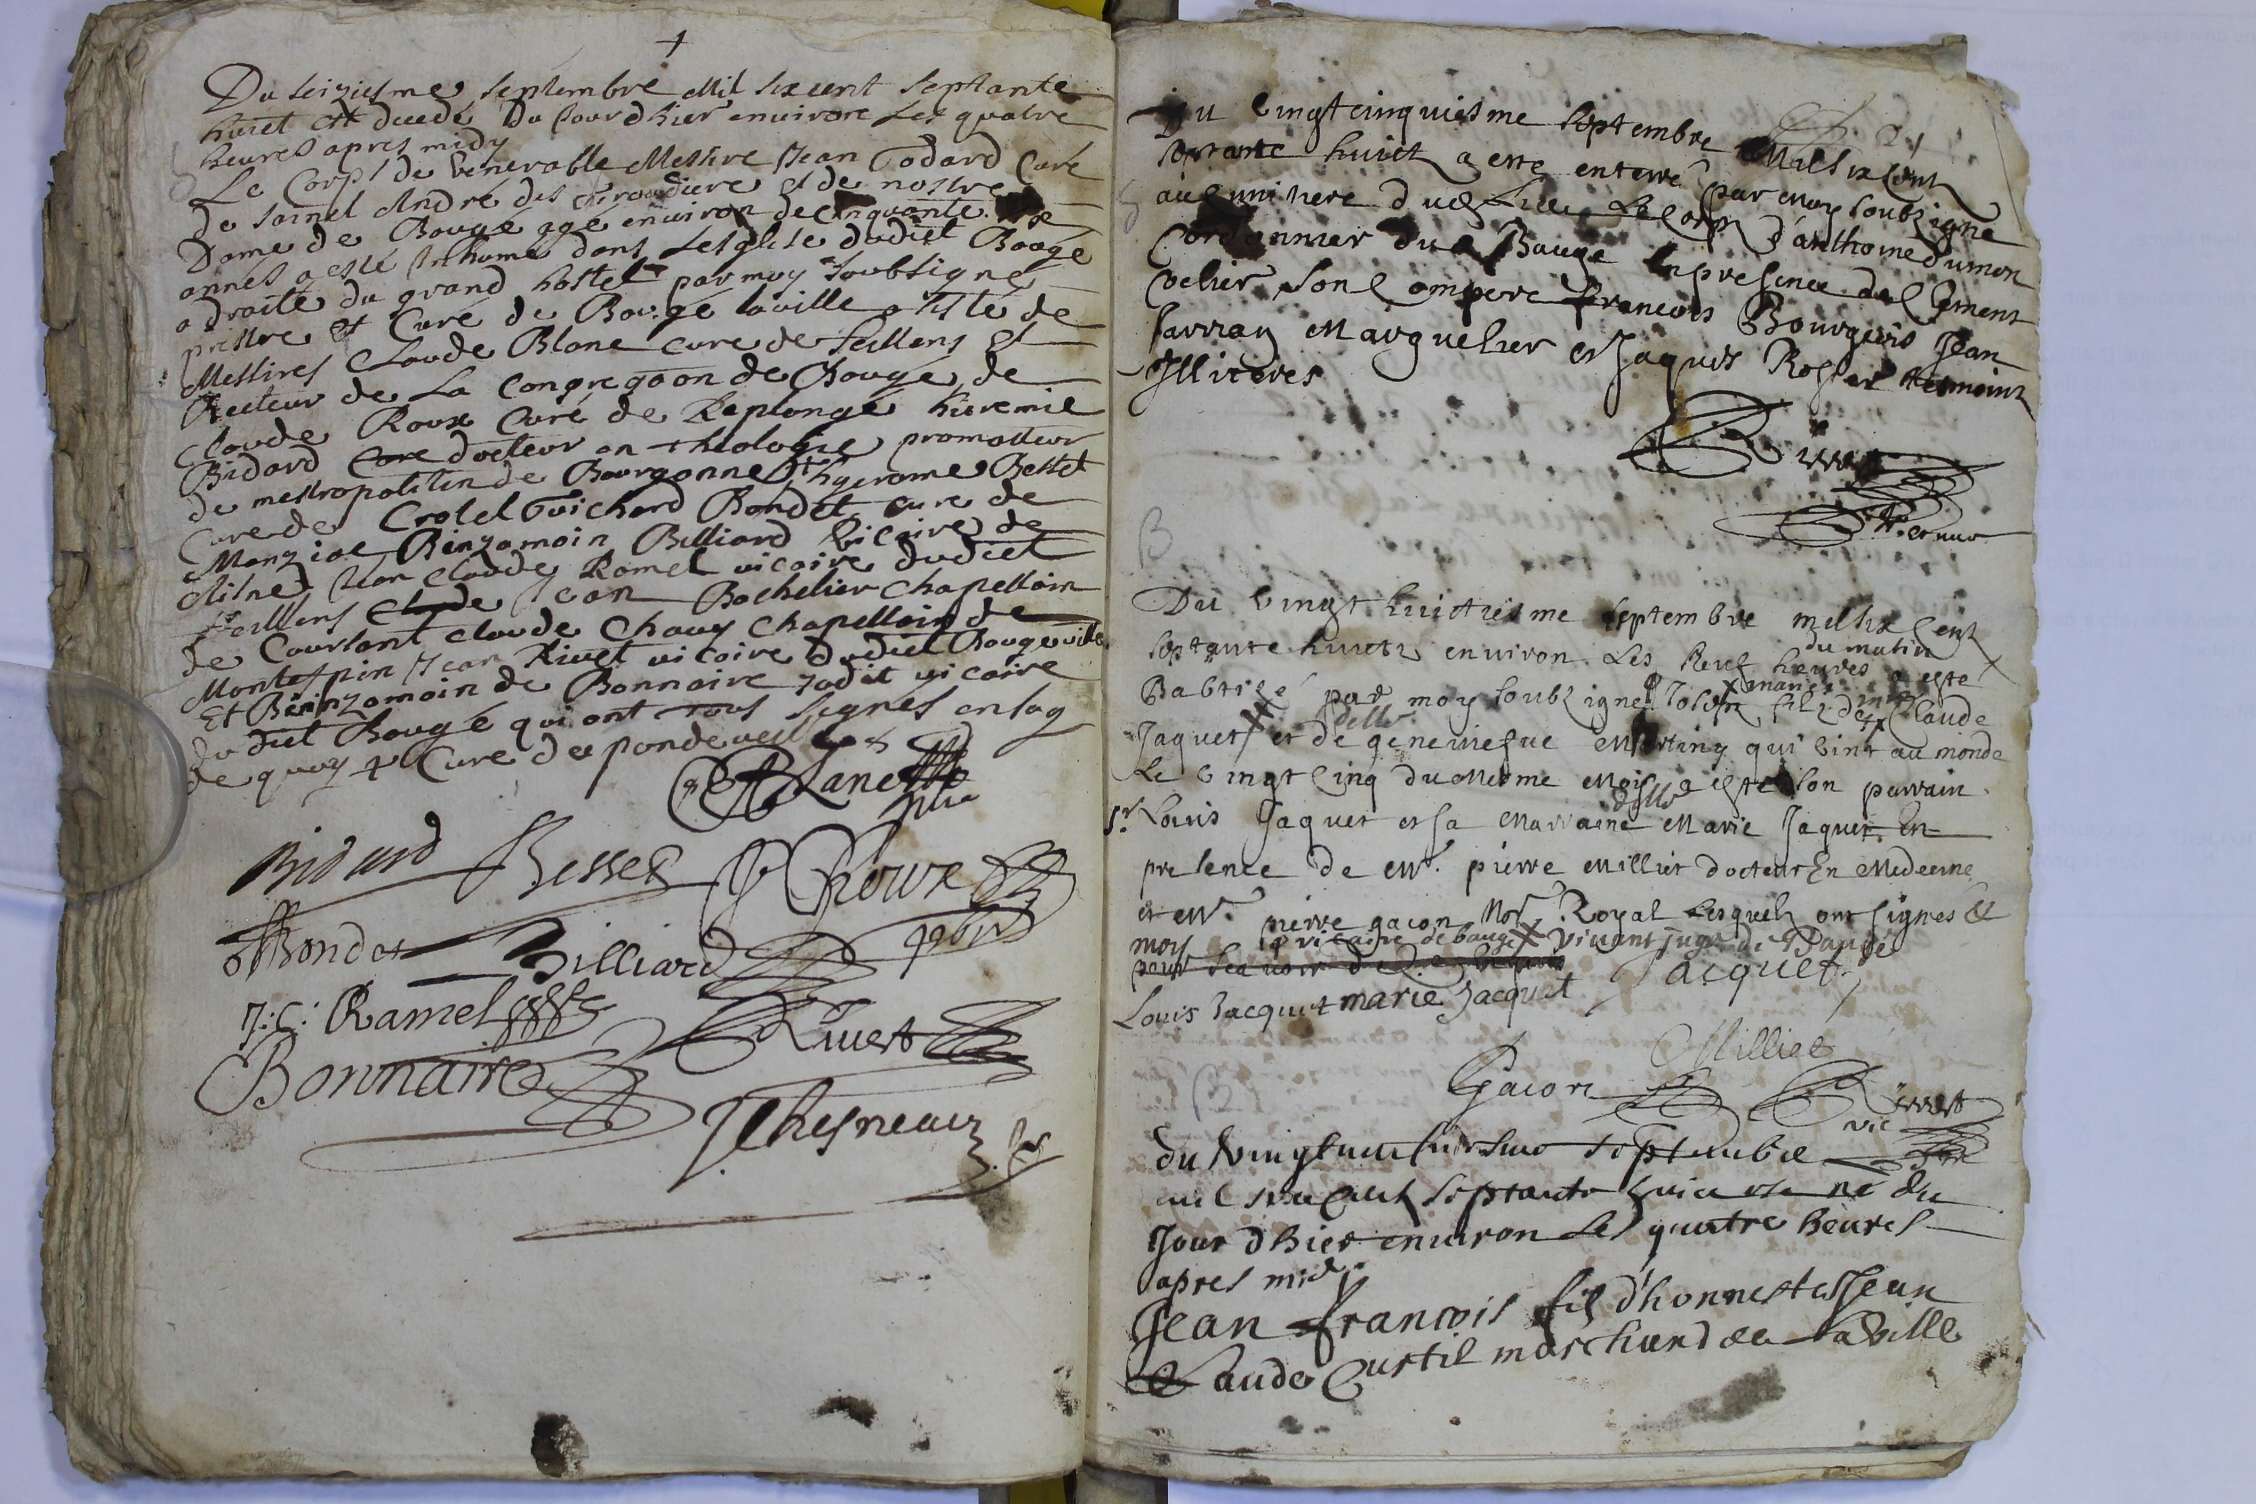 Du seiziesme septembre Mil six cent septante
huict est decedé Du Jourdhier environ Les quatre
heures apres midy
Le Corps de venerable Messire Jean Godard Curé
de sainct André des et de nostre
Dame de Baugé agé environ de cinquante
annes a esté Inhumé dans Lesglise dudict Baugé
a droite du grand hostel par moy soubsigné
prestre et Curé de Baugé laville assisté de
Messires Claude Blanc curé de feillens et
Recteur de La Congregaon de Baugé de
Claude Roux Curé de Replonge hieremie
Bidard docteur en theologie promotteur
de mestropolitin de Bourgonne hyerome Besset
Cure de Crotel Guichard Bondet cure de
Manziat Binzamain Billiard vicaire de
Jean Claude Ramel vicaire dudict
feillens Jean Bachelier Chapellain
de Coursant Claude Chavy Chapellain de
Montespin Jean Rivet vicaire dudict Bauge ville
Et Beinzamain de Bonnaire vicaire
du dict Baugé qui ont tous signés en foy
de quoy + Cure de pondeveille
Blanc
Bidard Besset Roux
Bondet Billiard
J: C: Ramel Rivet
Bonnaire
Chesneau
Du vingtcinquiesme septembre Mil six cent
septante huict a este enterré par moy soubsigne
au cimitiere Le Corps d'anthoine dumon
Cordonnier dud Bauge En presence de Clement
son Compere francois Bourgeois Jean
Jarvan Marguelier et Jaques Rosset tesmoins
Illiteres
Rivet
B
Du vingt huictiesme septembre mil six cent
septante huict environ Les neuf heures du matin a este
Babtizé par moy soubsigne fils de Claude
Jaquet et de delle geneviefve Martiny qui vint au monde
Le vingt cinq du Mesme Mois a este son parrain
Sr Louis Jaquet et sa Marraine delle Marie Jaquet. En
presence de Mr. pierre Milliet docteur En Medecine
et Mr. pierre gacon Nore Royal Lesquels ont signes et
moy vicaire de bauge vivant juge de Baugé
Louis Jacquet marie Jacquet Jacquet
Milliet
Gacon Rivet
vic
B
du vingt septembre
mil six cent septante huict est né du
Jour dhier environ Les quatre heures
apres midy
Jean francois fils d'honneste Jean
Claude Curtil marchand de La ville